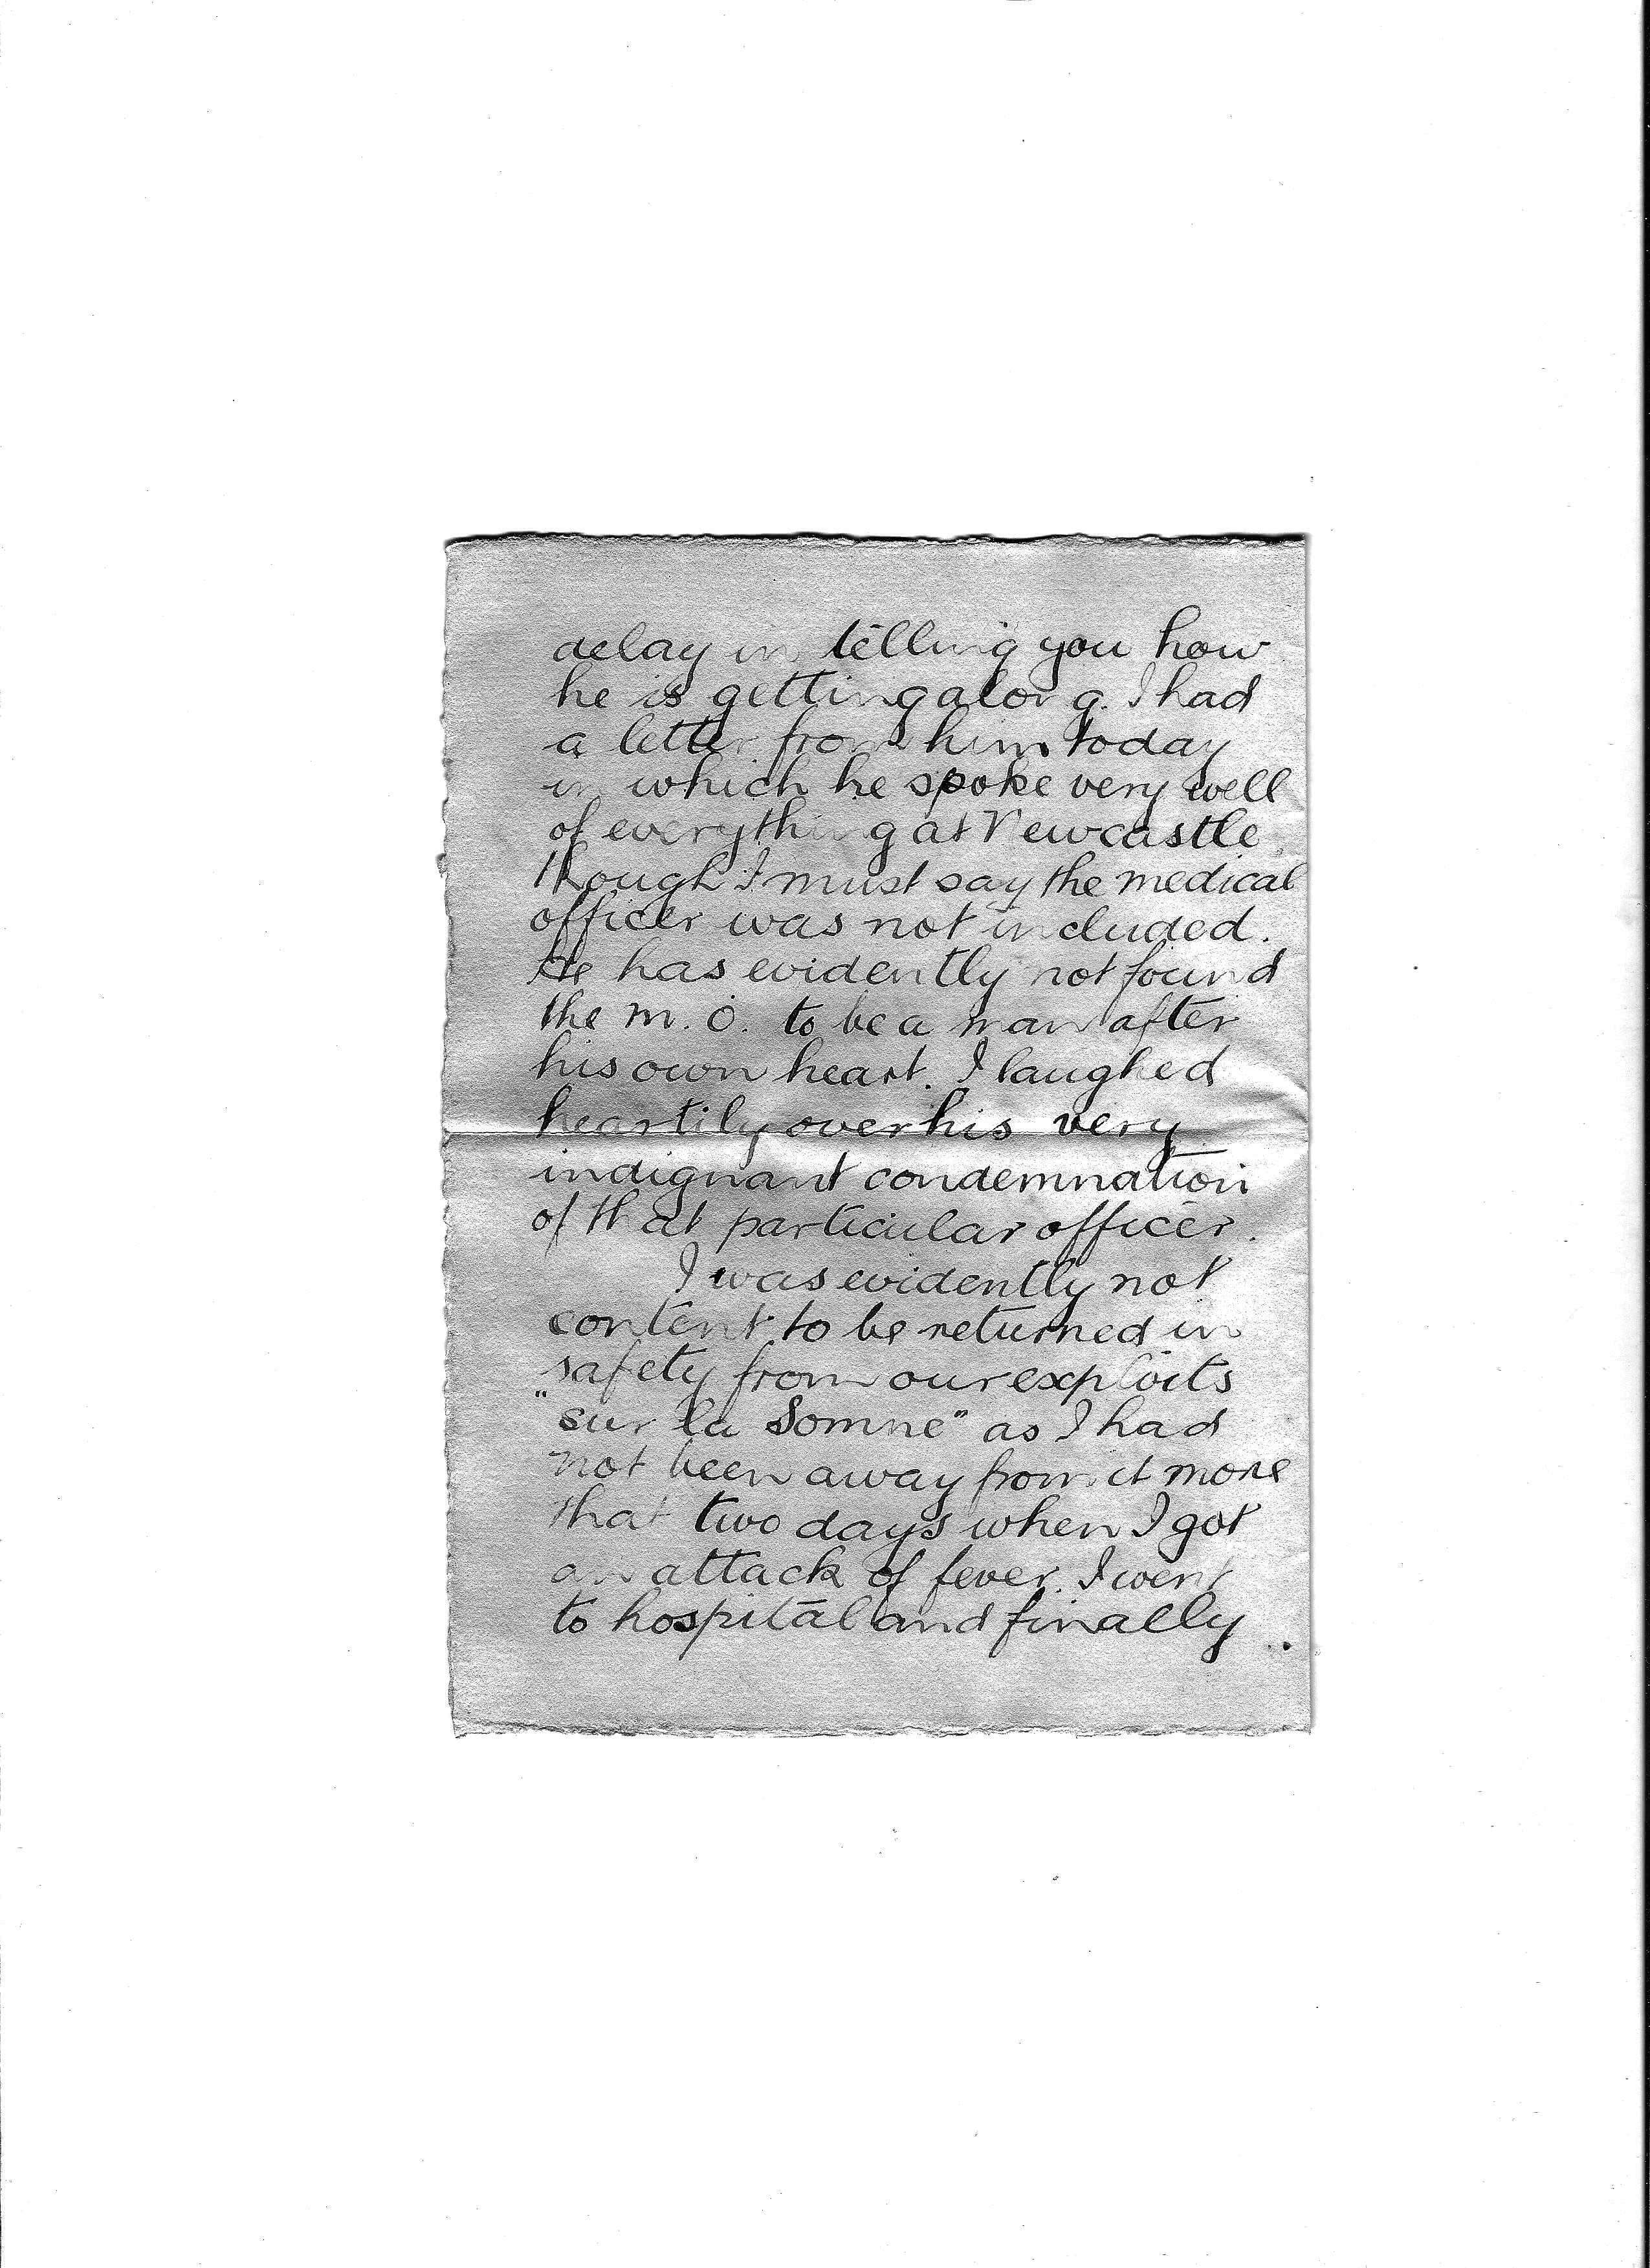 delay in telling you how
he is getting along. I had
a letter from him today
in which he spoke very well
of everything at Newcastle
though I must say the medical
officer was not included.
He has evidently not found
the M.O. to be a man after
his own heart. I laughed
heartily over his very
indignant condemnation
of that particular officer.
I was evidently not
content to be returned in
safety from our exploits
"sur la Somme" as I had
not been away from it more
that two days when I got
an attack of fever. I went
to hospital and finally